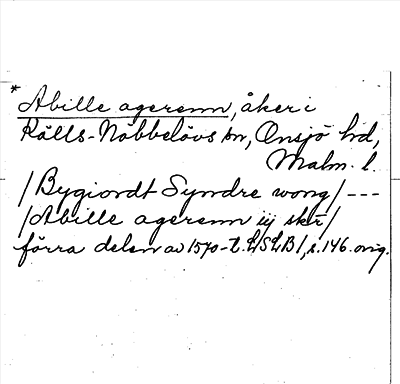 * Abille agerenn, åker i
Källs-Nöbbelövs sn, Onsjö hd,
Malm. l.
/Bygiordt Syndre wong/ ---
/Abille agerenn iij sker/
förra delen av 1570-t. LSLB 1, s. 146. orig.